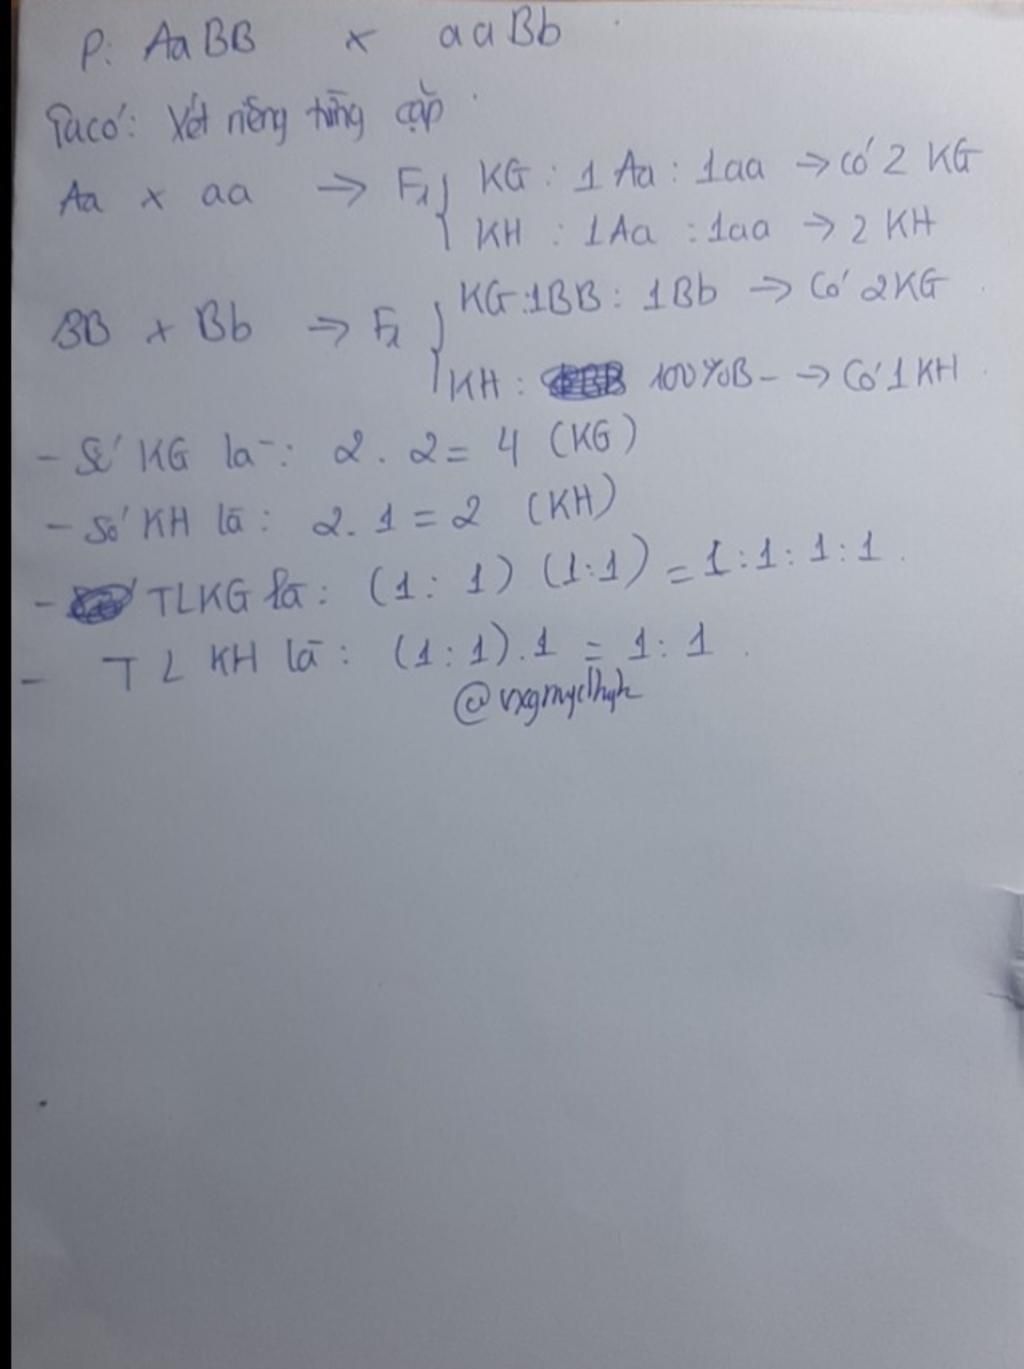 P: AaBB x aaBb
Ta có: Xét riêng từng cặp
Aa x aa → F1 { KG : 1 Aa : 1aa → Có 2 KG
KH : 1Aa : 1aa → 2 KH
BB x Bb → F1 { KG:1BB : 1Bb → Có 2KG
KH : 100%B- → Có 1 KH
- Số KG là : 2 . 2 = 4 (KG)
- Số KH là : 2 . 1 = 2 (KH)
- TLKG là : (1 : 1) (1:1) = 1:1:1:1.
- TL KH là : (1:1).1 = 1:1.